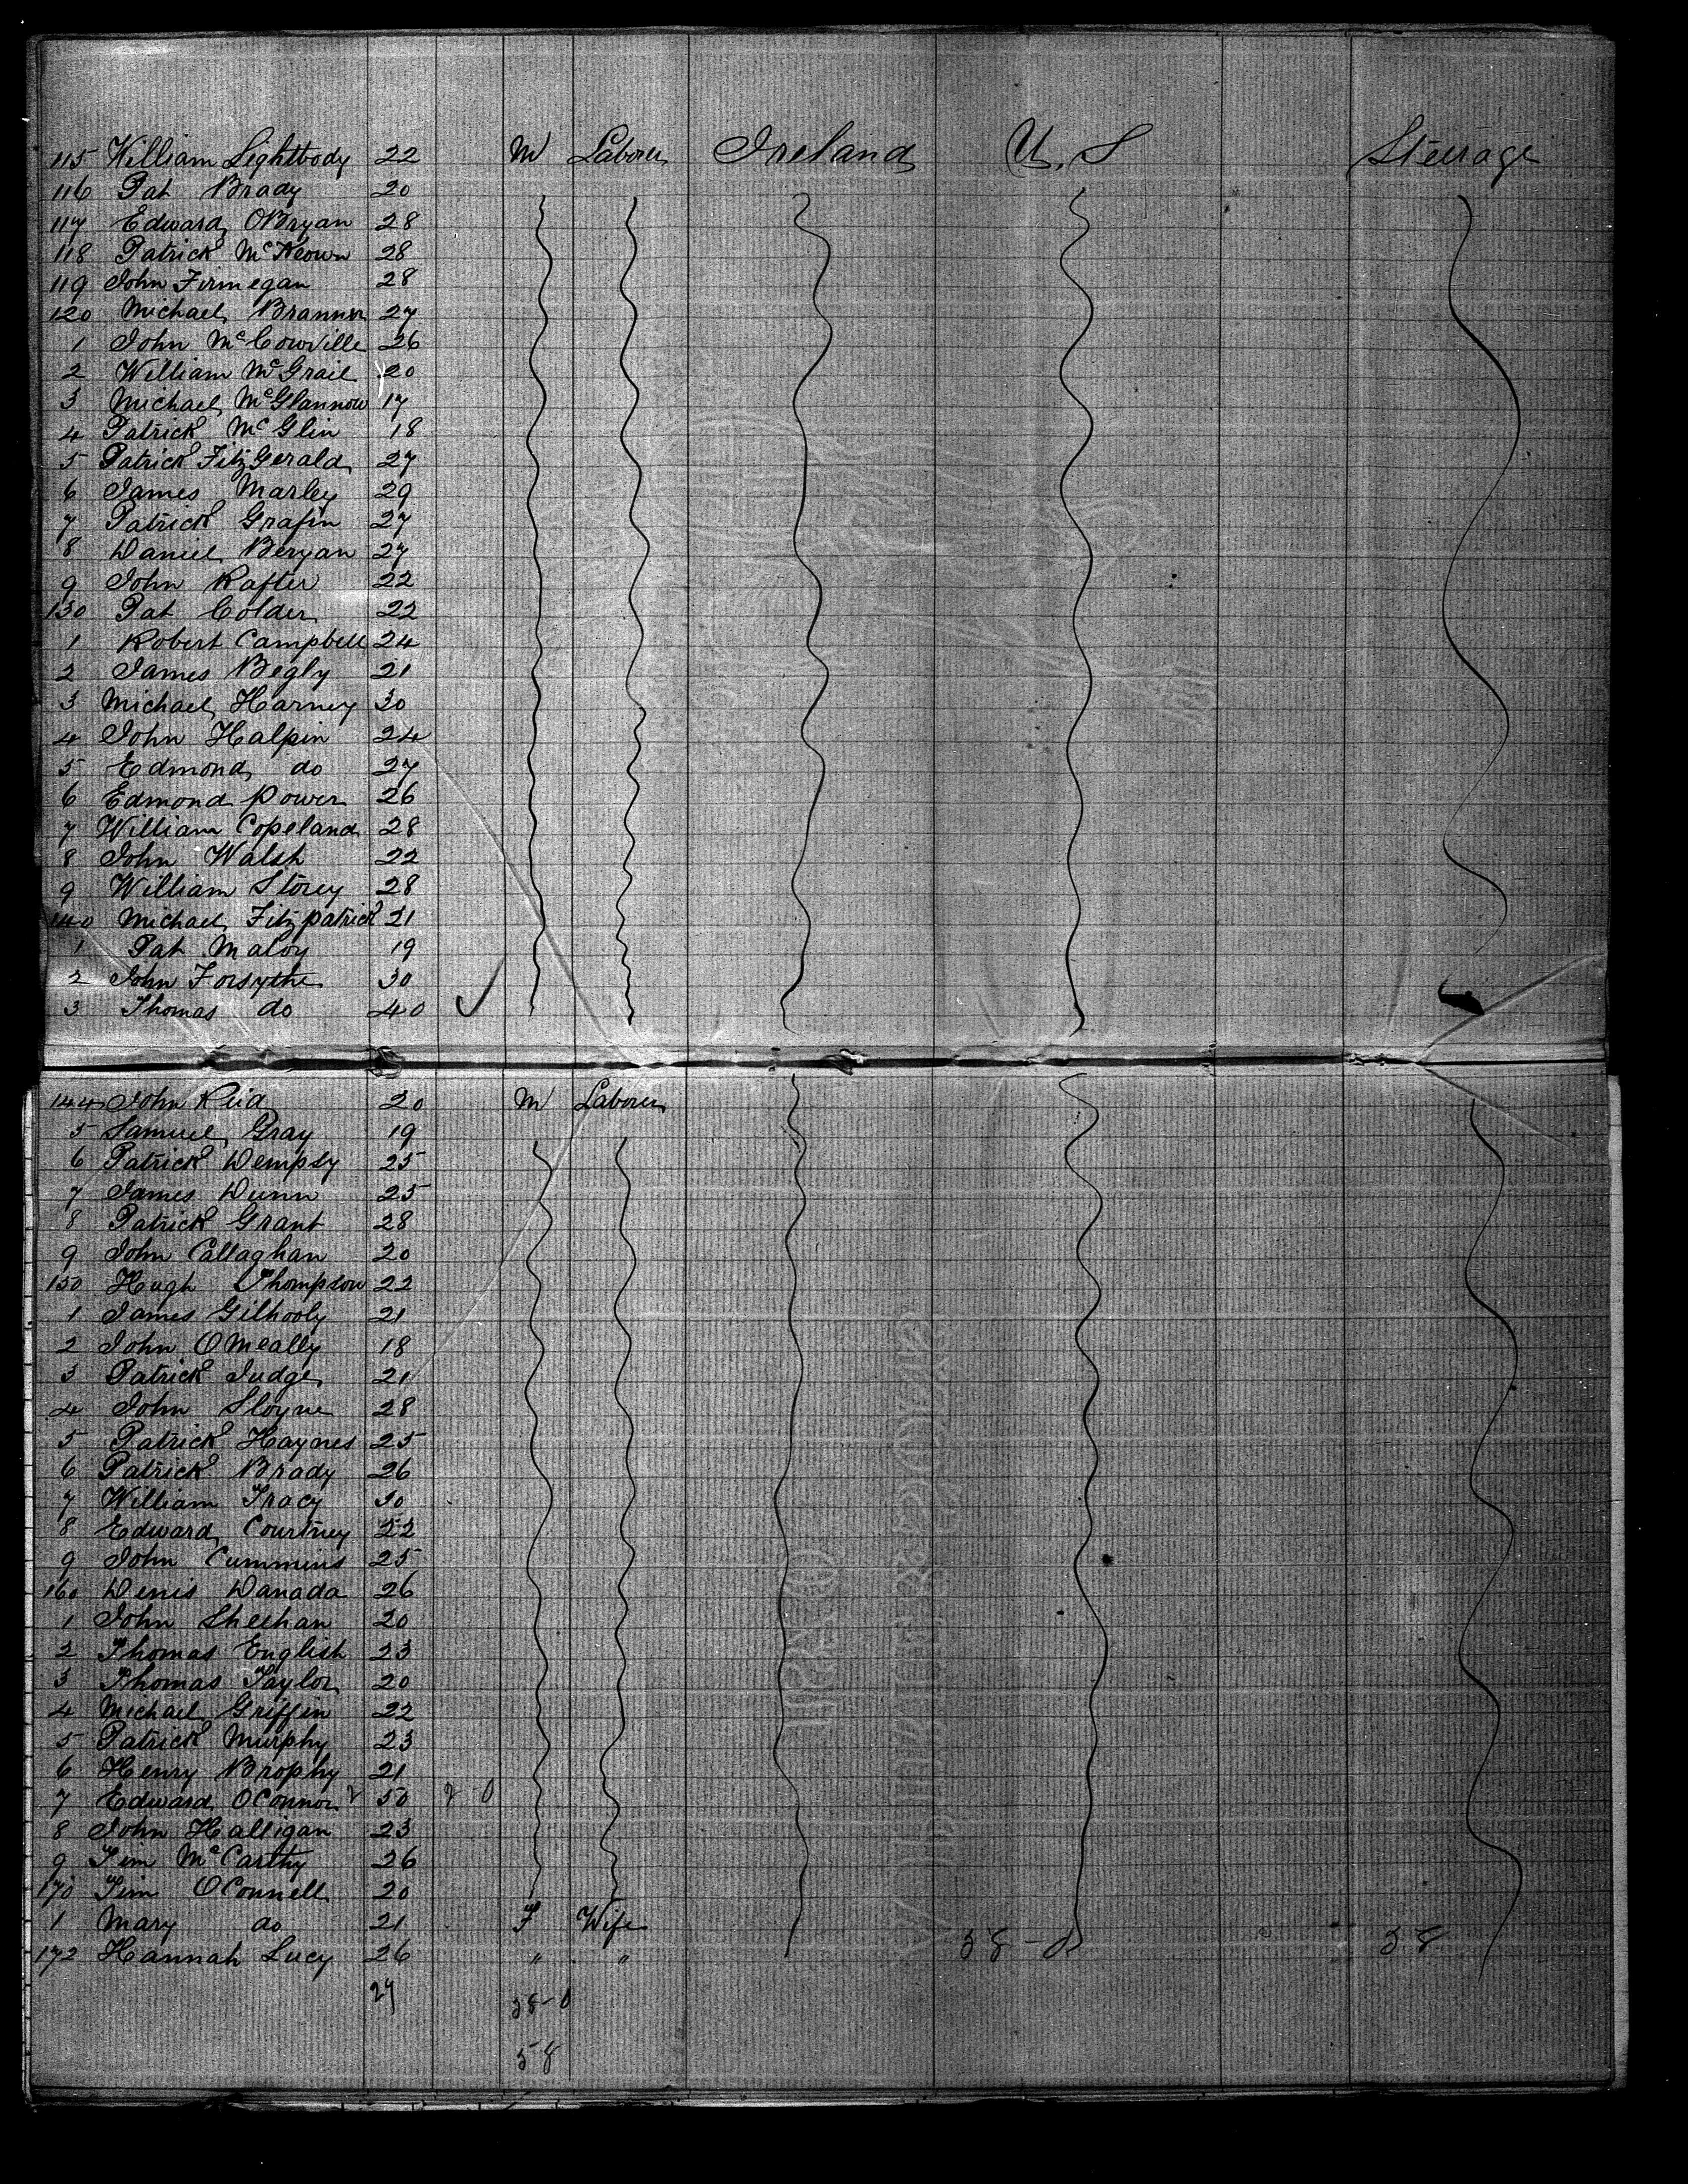 115 William Lightbody 22 M Laborer Ireland U.S Steerage
116 Pat Brady 20
117 Edward OBryan 28
118 Patrick McKeown 28
119 John Finnegan 28
120 Michael Brannon 27
1 John McCowville 26
2 William McGrail 20
3 Michael McGlannow 17
4 Patrick McGlin 18
5 Patrick FitzGerald 27
6 James Marley 29
7 Patrick Grafin 27
8 Daniel Beryan 27
9 John Rafter 22
130 Pat Colder 22
1 Robert Campbell 24
2 James Begly 21
3 Michael Harney 30
4 John Halpin 24
5 Edmond do 27
6 Edmond Power 26
7 William Copeland 28
8 John Walsh 22
9 William Storey 28
140 Michael Fitzpatrick 21
1 Pat Maloy 19
2 John Forsythe 30
3 Thomas do 40 ✓
144 John Reid 20 M Laborer
5 Samuel Gray 19
6 Patrick Dempsy 25
7 James Dunn 25
8 Patrick Grant 28
9 John Callaghan 20
150 Hugh Thompson 22
1 James Gilhooly 21
2 John OMeally 18
3 Patrick Judge 21
4 John Sloyne 28
5 Patrick Haynes 25
6 Patrick Brady 26
7 William Tracy 30
8 Edward Courtney 22
9 John Cummins 25
160 Denis Danada 26
1 John Sheehan 20
2 Thomas English 23
3 Thomas Taylor 20
4 Michael Griffin 22
5 Patrick Murphy 23
6 Henry Brophy 21
7 Edward OConnor 50
8 John Halligan 23
9 Tim McCarthy 26
170 Tim OConnell 20
1 Mary do 21 F Wife
172 Hannah Lucy 26 " " 58-0 58
29 58-0
58